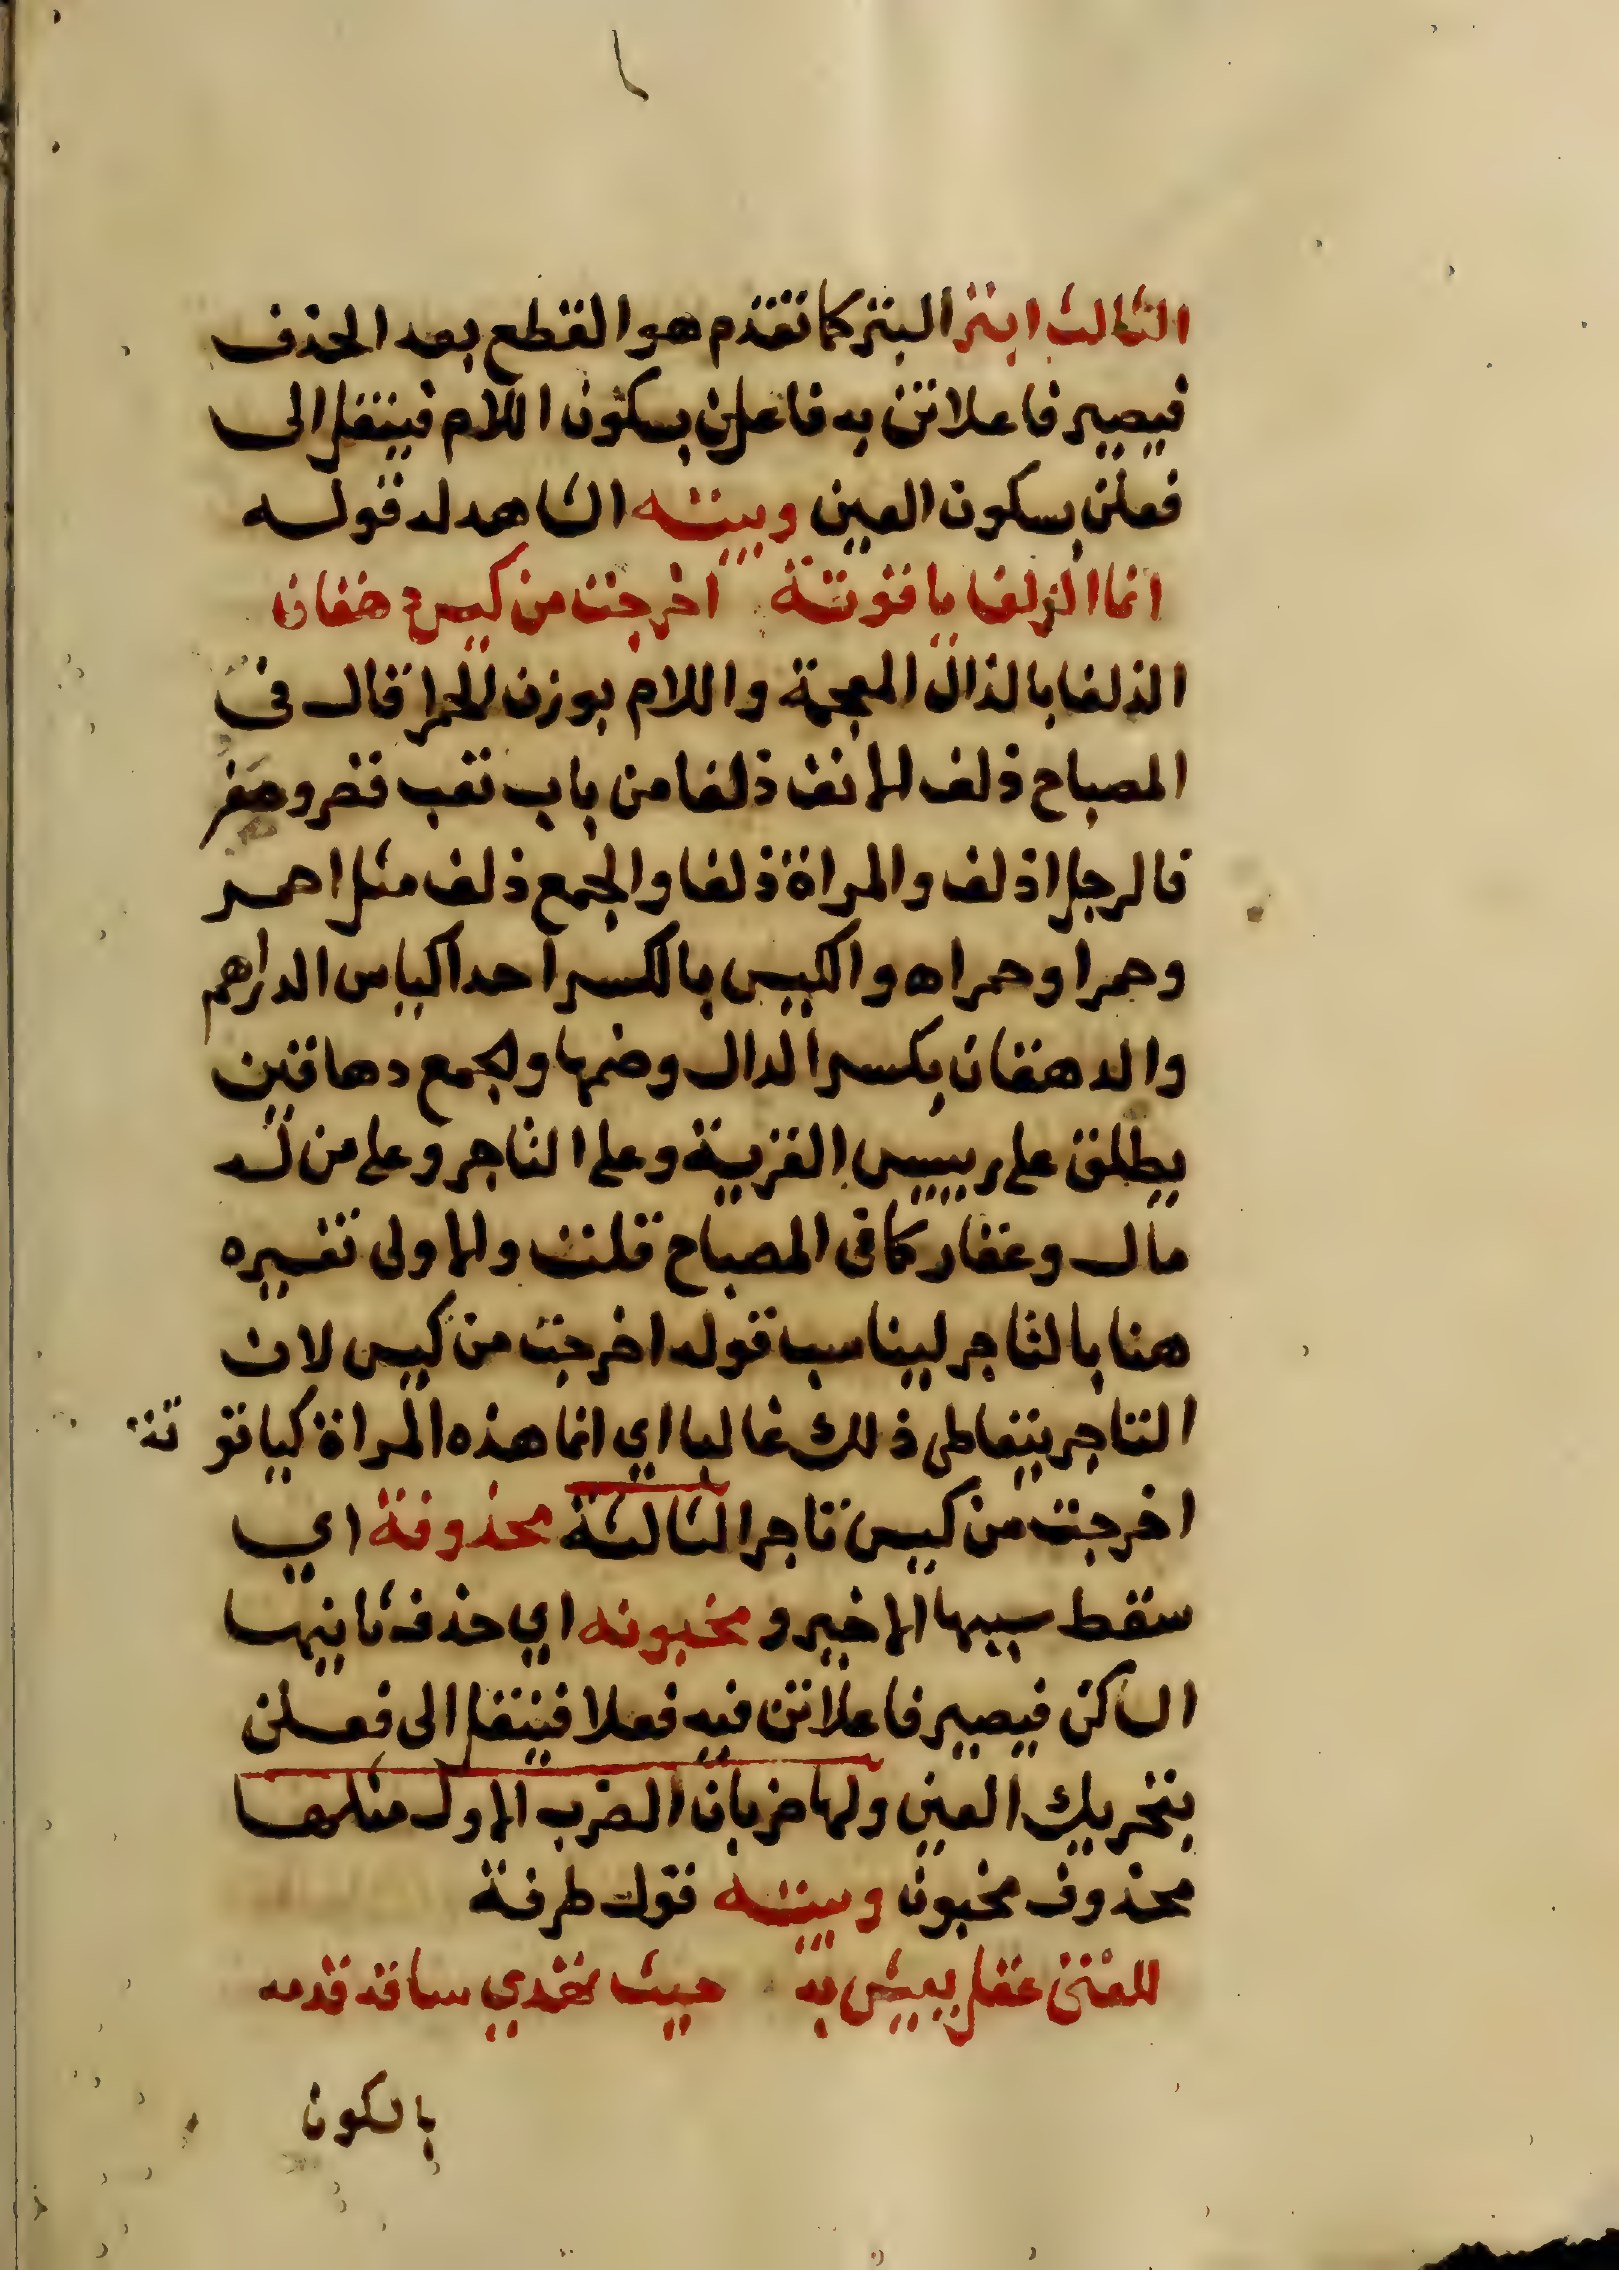 الثالث ابتر البتر كما تقدم هو القطع بعد الحذف
فيصير فاعلاتن به فاعلن بسكون اللام فينقل الى
فعلن بسكون العين وبيته الشاهد له قوله
انما الزلفا ياقوتة اخرجت من كيس دهقان
الذلفا بالذال المعجمة واللام بوزن الحمرا قال في
المصباح ذلف الانف ذلفا من باب تعب قصر وصغر
فالرجل اذلف والمراة ذلفا والجمع ذلف مثل احمر
وحمرا وحمر اه والكيس بالكسر احد اكياس الدراهم
والدهقان بكسر الدال وضمها ولجمع دهاقين
يطلق على رييس القرية وعلى التاجر وعلى من له
مال وعقار كما في المصباح قلت والاولى تفسيره
هنا بالتاجر ليناسب قوله اخرجت من كيس لان
التاجر يتعاطى ذلك غالبا اي انما هذه المراة كياقو تة
اخرجت من كيس تاجر الثالثة محذوفة اي
سقط سببها الاخير و مخبونه اي حذف ثانيها
الساكن فيصير فاعلاتن فيه فعلا فينقل الى فعلن
بتحريك العين ولها ضربان الضرب الاول مثلها
محذوف مخبون وبيته قول طرفة
للفتى عقل يعيش به حيث تهدي ساقه قدمه
بالكون